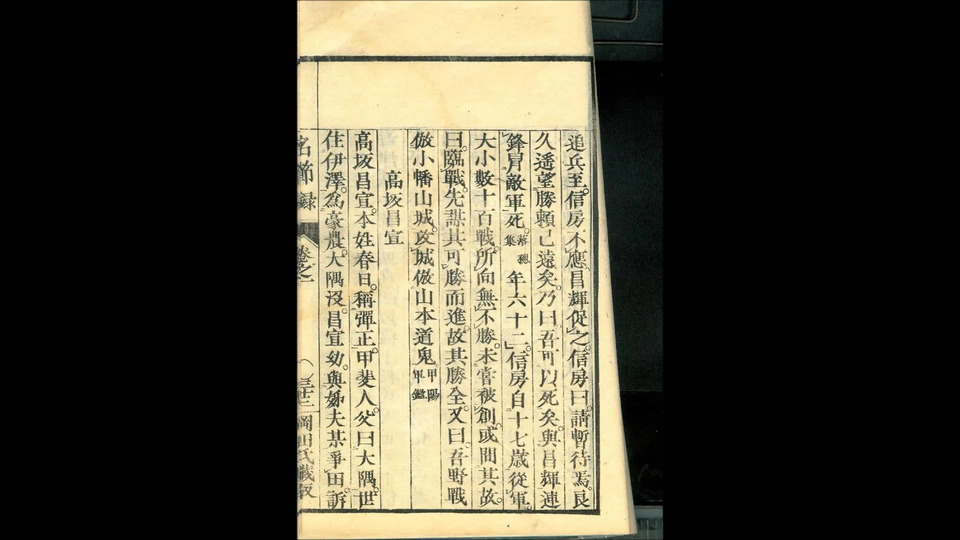 追兵至。信房不應。昌輝促之。信房曰。請暫待焉。良
久遥望勝頼已遠矣。乃曰吾可以死矣。與昌輝連
鋒冒敵軍死。落穂集年六十二。信房自十七歳從軍。
大小數十百戰。所向無不勝。未嘗被創。或問其故。
曰。臨戰先謀其可勝而進。故其勝全。又曰。吾野戰
倣小幡山城。攻城倣山本道鬼甲陽軍鑑
高坂昌宣
高坂昌宣。本姓春日。稱彈正。甲斐人。父曰大隅。世
住伊澤。爲豪農。大隅沒。昌宣幼。與姊夫某爭田。訴
名節録
卷之一
岡田氏藏板